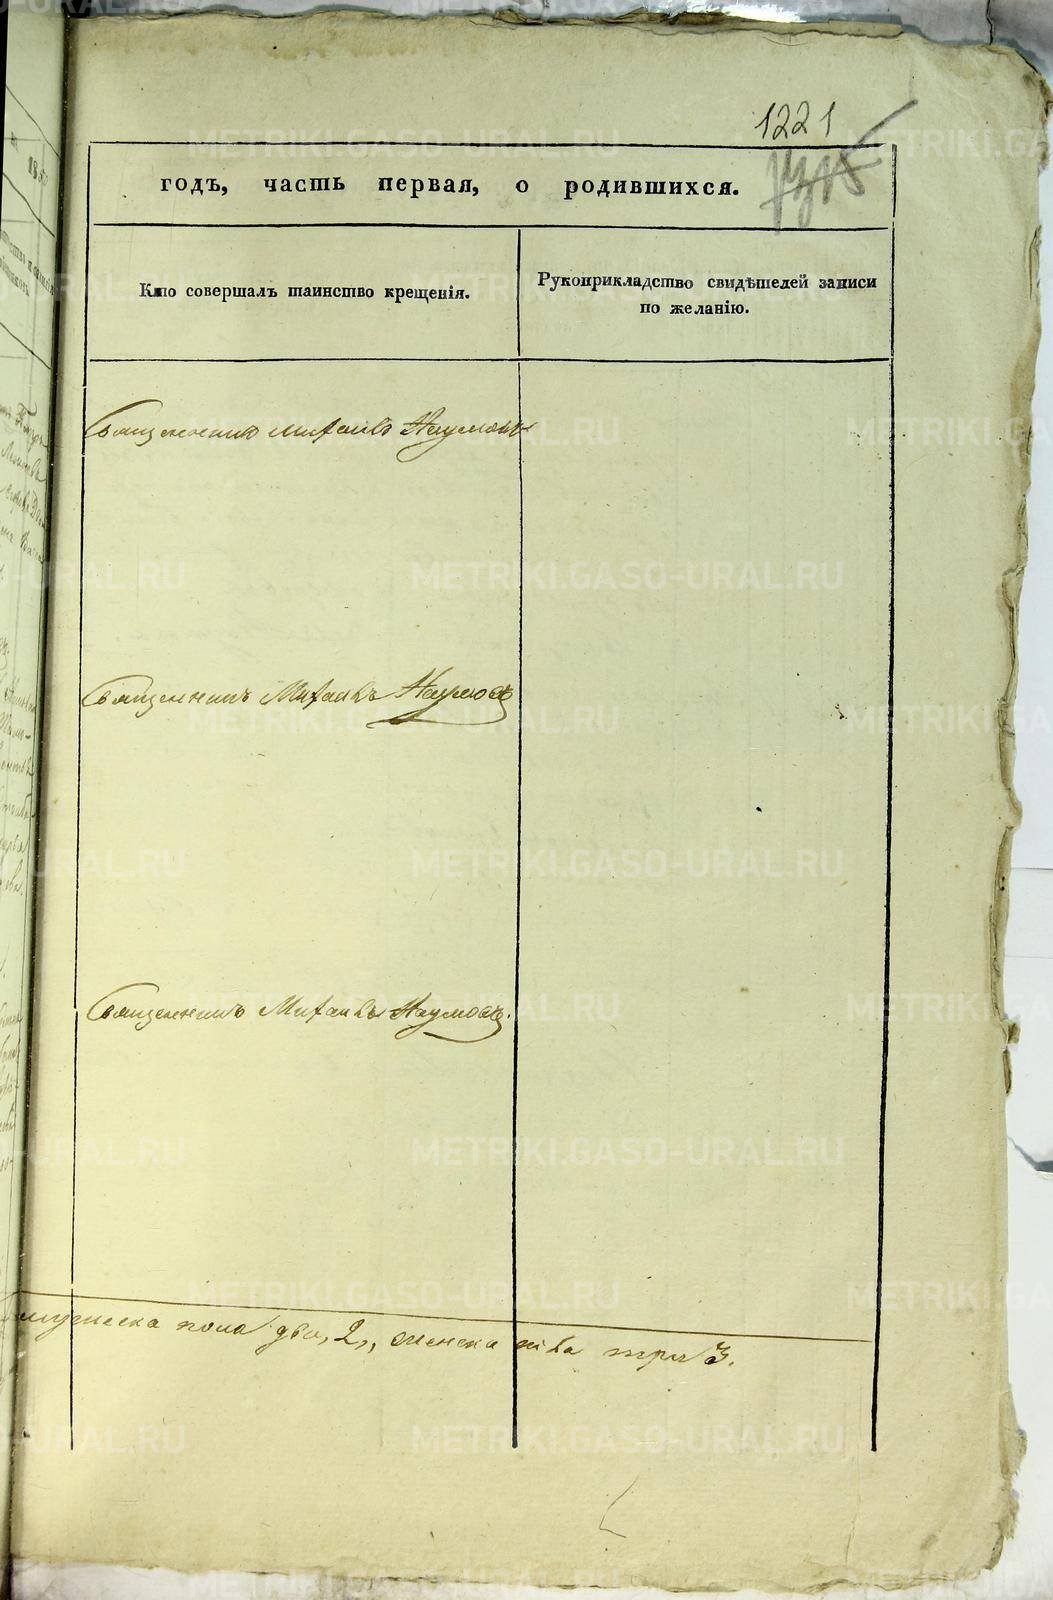 1221
годъ, часть первая, о родившихся.
Кто совершалъ таинство крещенія.
Рукоприкладство свидѣтелей записи
по желанію.
Священникъ Михаилъ Наумовъ
Священникъ Михаилъ Наумовъ
Священникъ Михаилъ Наумовъ.
мужеска пола два, 2, женска пола три 3.
METRIKI.GASO-URAL.RU